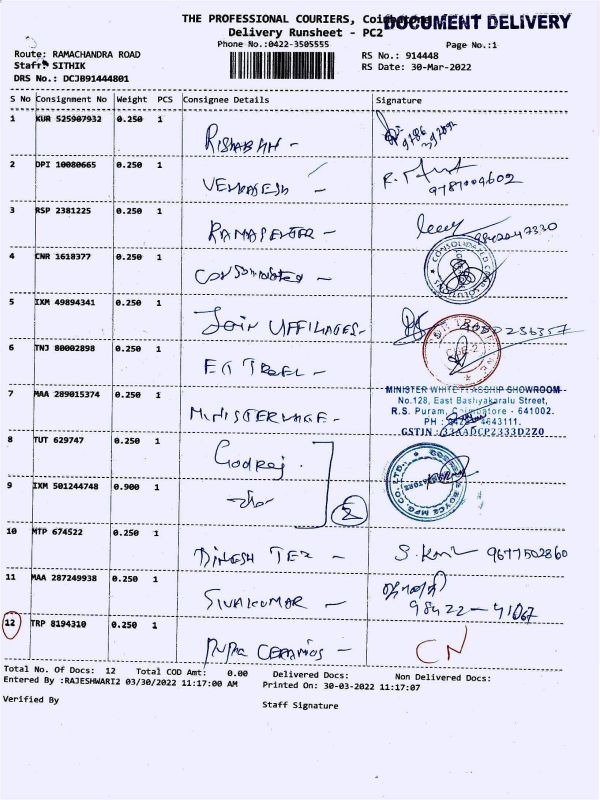 THE PROFESSIONAL COURIERS, Coimbatore
DOCUMENT DELIVERY
Delivery Runsheet - PC2
Phone No.:0422-3505555
Page No.:1
Route: RAMACHANDRA ROAD
RS No.: 914448
Staff: SITHIK
RS Date: 30-Mar-2022
DRS No.: DCJB91444801
S No Consignment No Weight PCS Consignee Details Signature
1 KUR 525907932 0.250 1
RISHABAH -
2 DPI 10080665 0.250 1
VENKATESH -
9787009602
3 RSP 2381225 0.250 1
9842047330
4 CNR 1618377 0.250 1
CONSOLIDATED
5 IXM 49894341 0.250 1
6 TNJ 80002898 0.250 1
7 MAA 289015374 0.250 1
MINISTER WHITE FLAGSHIP SHOWROOM
No.128, East Bashyakaralu Street,
R.S. Puram, Coimbatore - 641002.
PH : 4643111.
GSTIN : 33AADCP2333D2Z0
8 TUT 629747 0.250 1
Godrej
9 IXM 501244748 0.900 1
-do-
2
10 MTP 674522 0.250 1
DINESH TEX -
9677502860
11 MAA 287249938 0.250 1
SIVAKUMAR -
98422-41067
12 TRP 8194310 0.250 1
CERAMICS -
CN
Total No. Of Docs: 12 Total COD Amt: 0.00 Delivered Docs: Non Delivered Docs:
Entered By :RAJESHWARI2 03/30/2022 11:17:00 AM Printed On: 30-03-2022 11:17:07
Verified By
Staff Signature